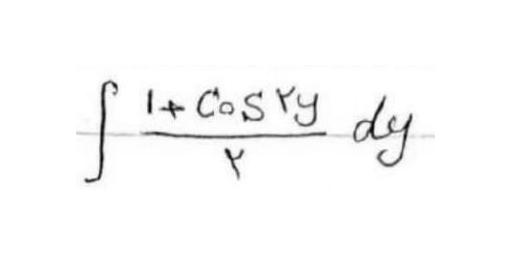 ∫ (1 + Cos ۲y) / ۲ dy